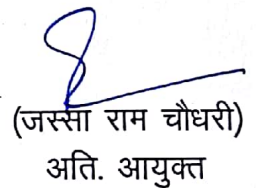 (जस्सा राम चौधरी)
अति. आयुक्त